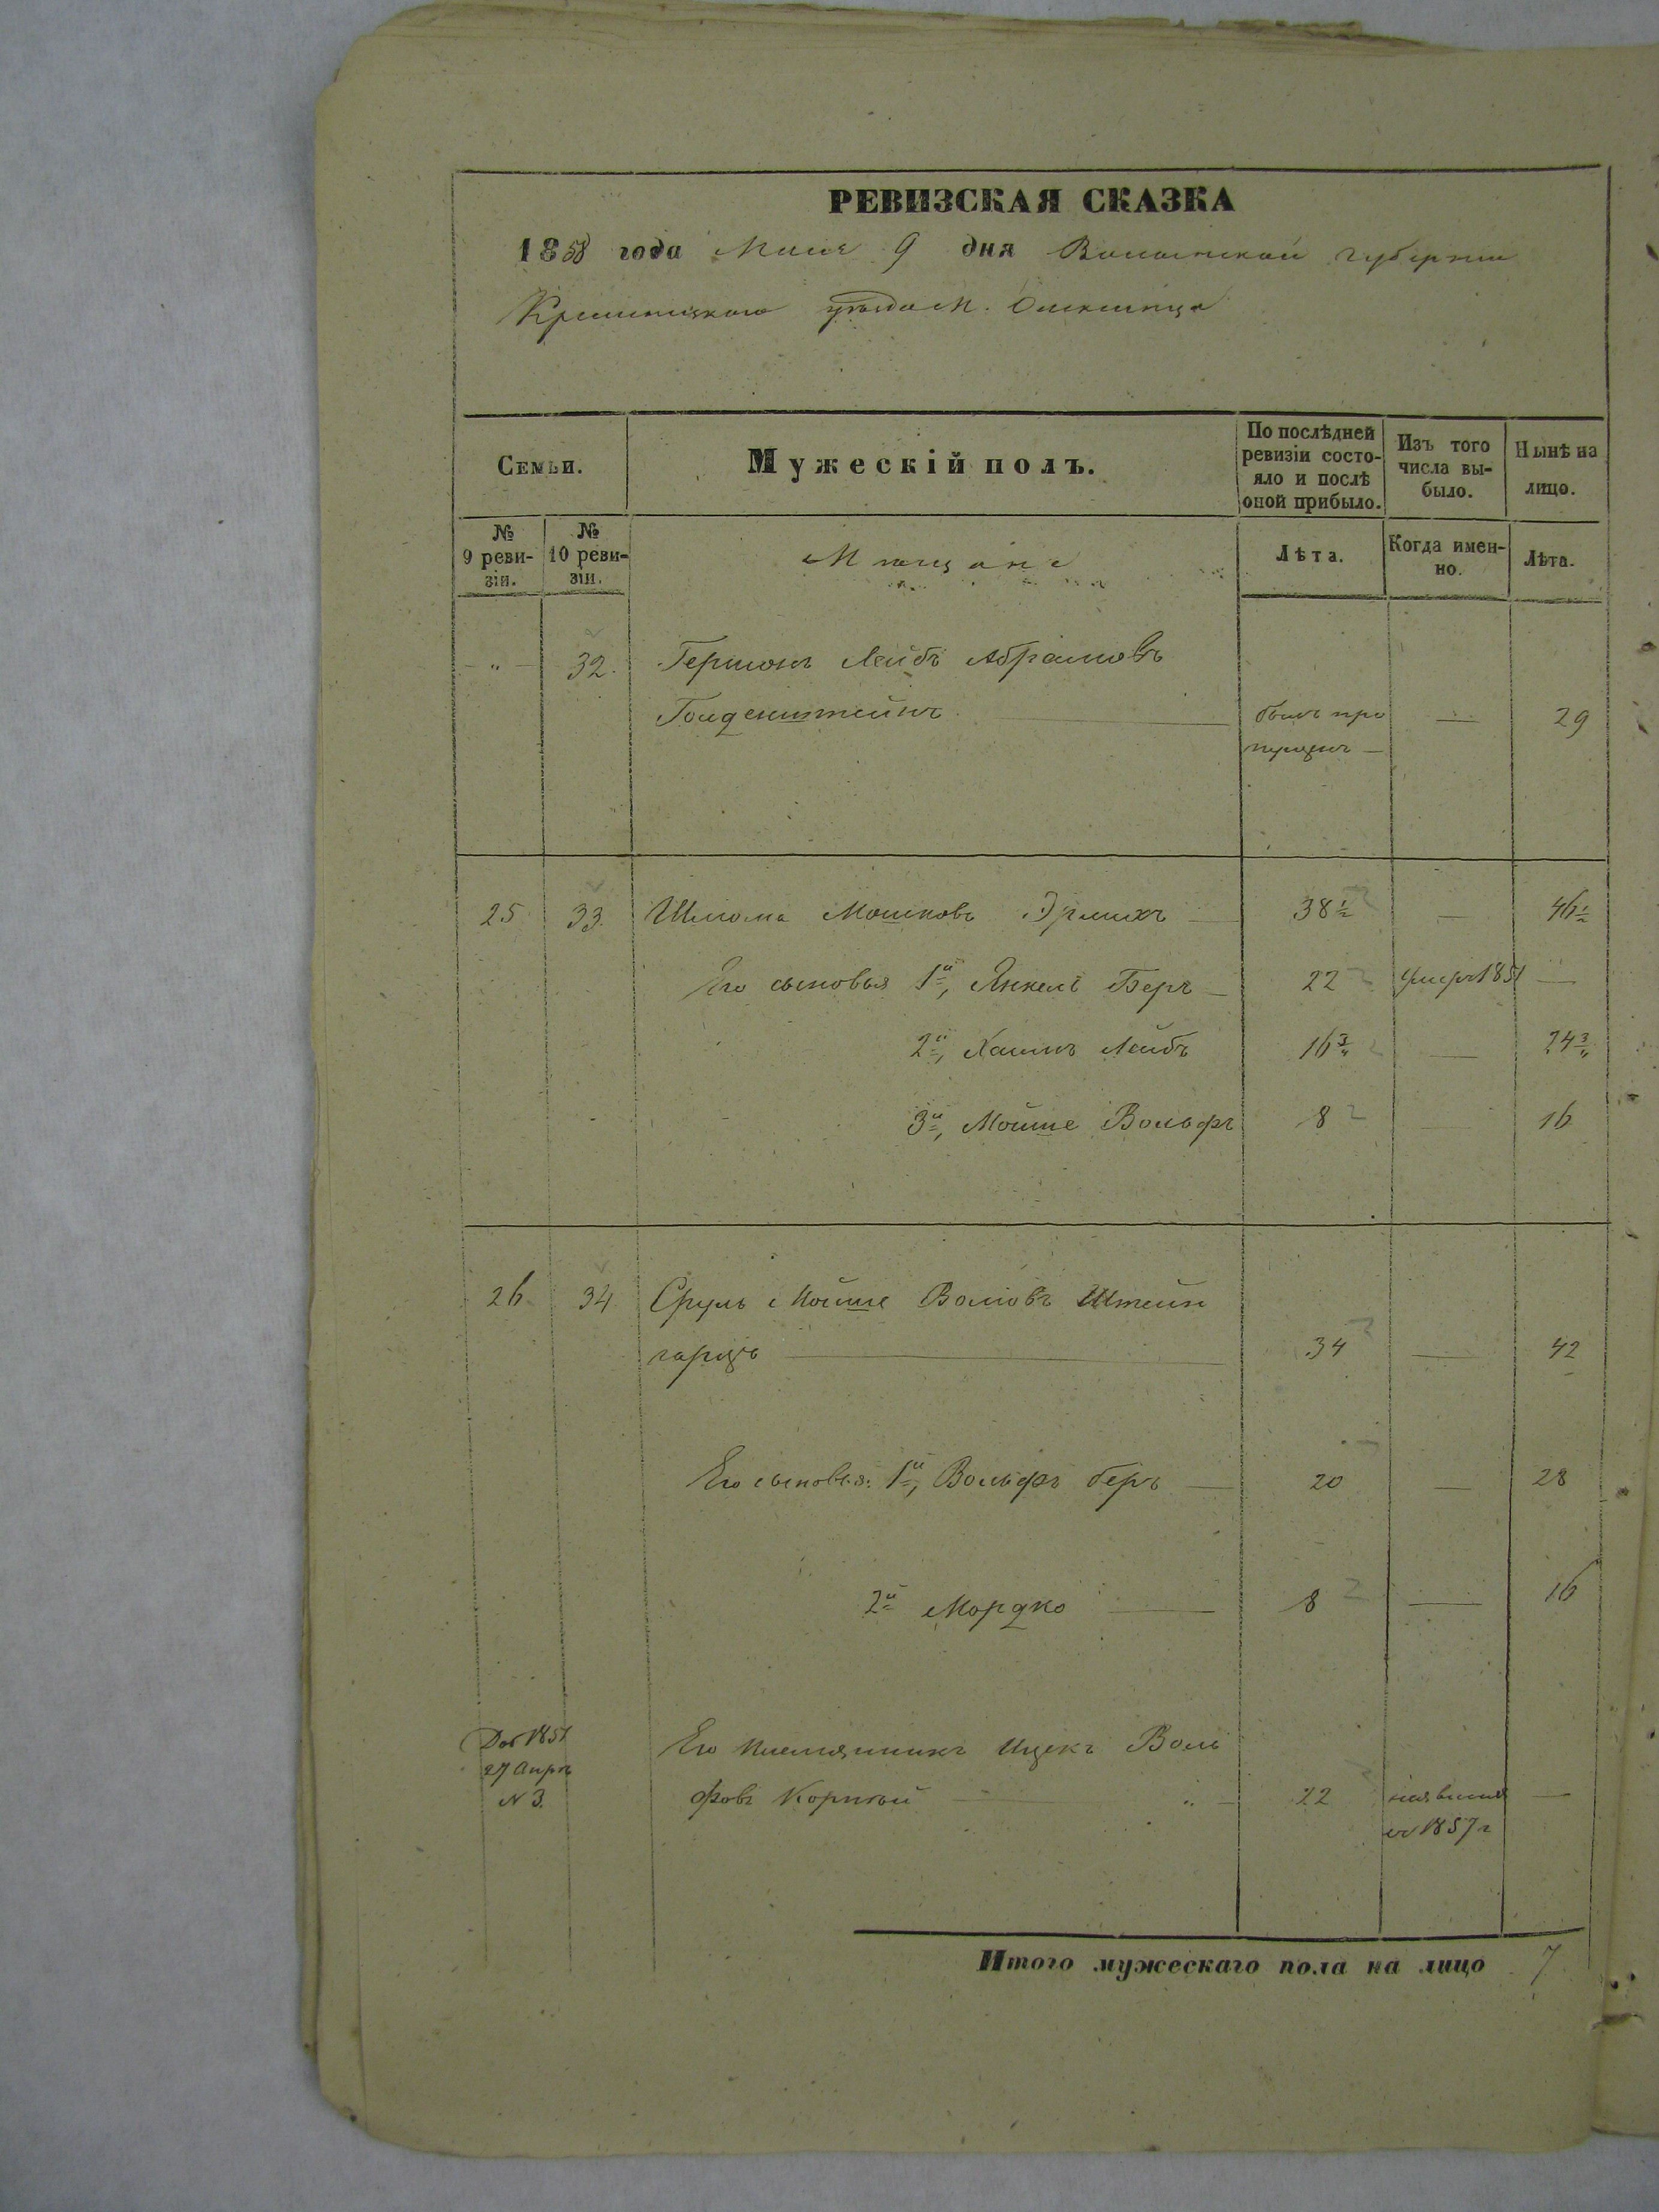 РЕВИЗСКАЯ СКАЗКА
1858 года Маия 9 дня Волынской губернии
Кременецкаго уѣзда М. Олексинца
Семьи.
Мужескій полъ.
По послѣдней ревизіи состо-
яло и послѣ
оной прибыло.
Изъ того
числа вы-
было.
Нынѣ на
лицо.
№
9 реви-
зіи.
№
10 реви-
зіи.
Мѣщане
Лѣта.
Когда имен-
но.
Лѣта.
„ 32. Гершонъ Лейбъ Абрамовъ
Голденштейнъ былъ про 29
пущенъ
25 33 Шлиома Мошковъ Эрлихъ 38½ 46½
Его сыновья 1й, Янкель Беръ 22 умеръ 1851
2й, Хаимъ Лейбъ 16¾ 24¾
3й, Мойше Вольфъ 8 16
26 34 Сруль Мойше Волiовъ Штейн
гарцъ 34 42
Его сыновья: 1й, Вольфъ беръ 20 28
2й Мордко 8 16
Доп 1851
27 Апрѣ
N 3.
Его племянникъ Ицекъ Воль
фовъ Корный „ 22
1857 г
Итого мужескаго пола на лицо 7